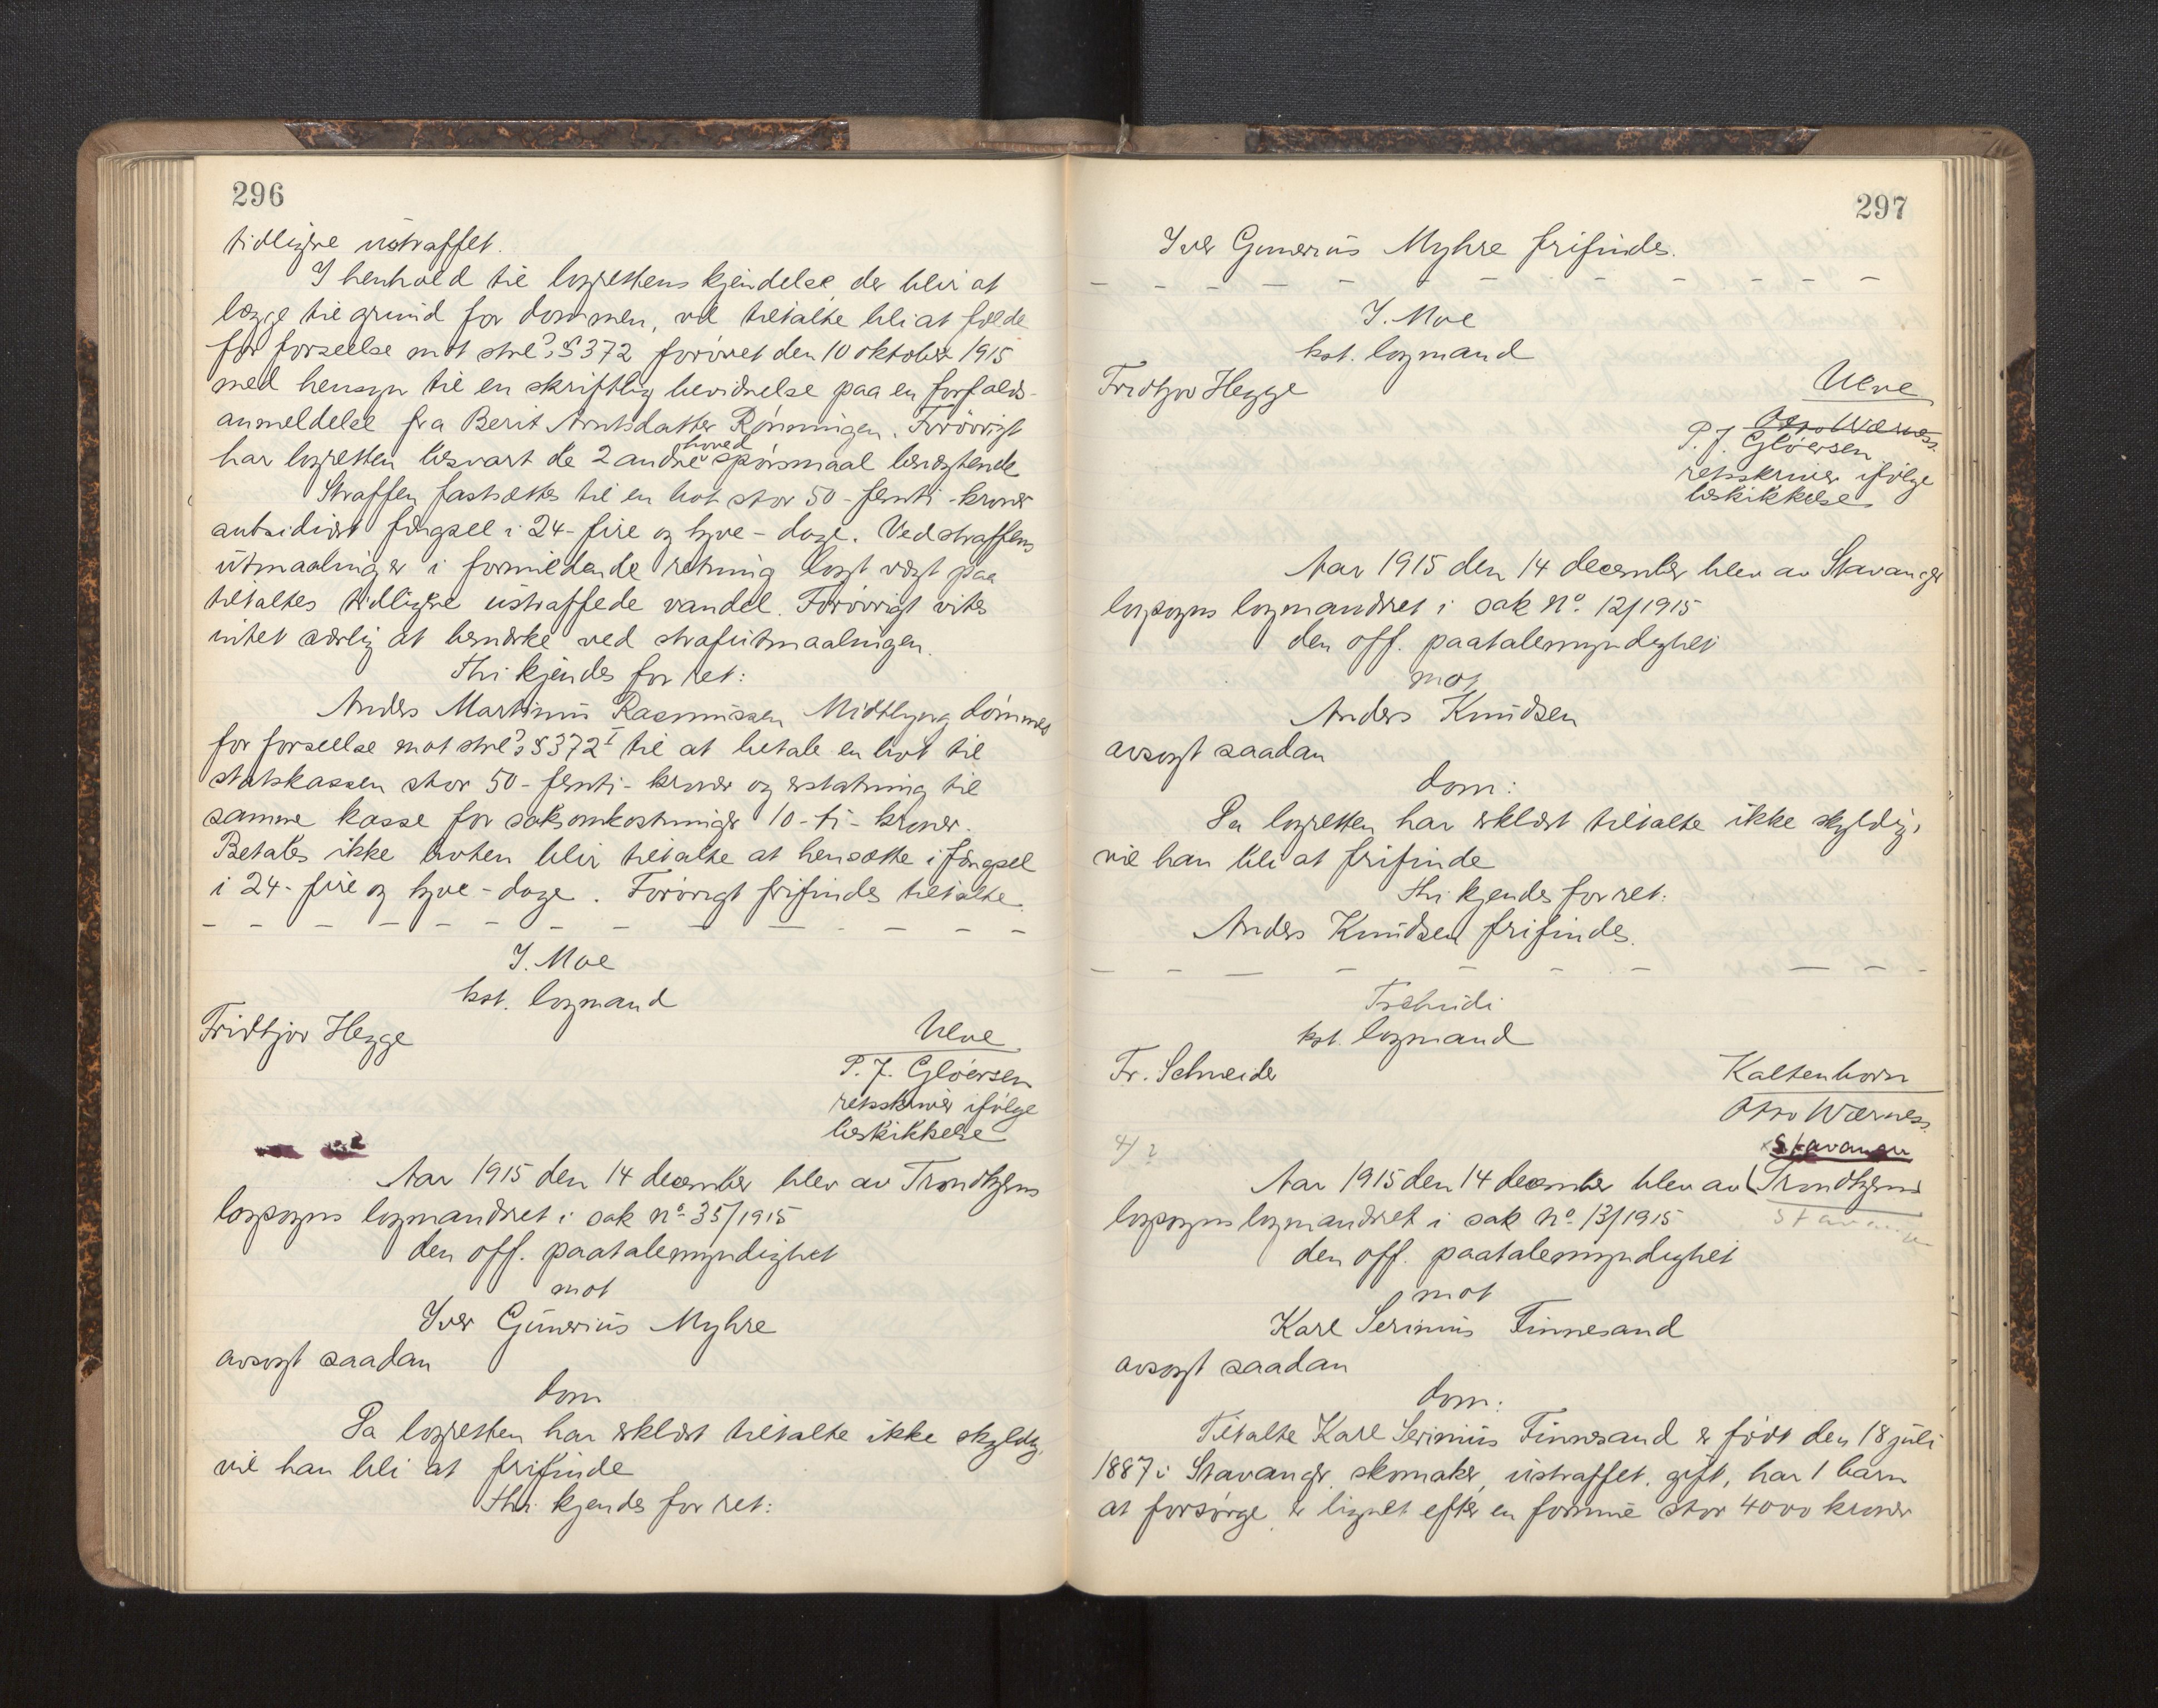 296
tidligere ustraffet.
I henhold til lagrettens kjendelse, der blir at
lægge til grund for dommen, vil tiltalte bli at fælde
for forseelse mot strl's § 372 forøvet den 10 oktober 1915
med hensyn til en skriftlig bevidnelse paa en forfalds-
anmeldelse fra Berit Arntsdatter Rønningen. Forøvrigt
har lagretten besvart de 2 andre hoved spørsmaal benægtende
Straffen fastsættes til en bot stor 50 - femti - kroner
subsidiært fængsel i 24 - fire og tyve - dage. Ved straffens
utmaaling er i formildende retning lagt vægt paa
tiltaltes tidligere ustraffede vandel. Forøvrigt vites
intet særlig at bemærke ved strafutmaalingen.
Thi kjendes for ret:
Anders Martinus Rasmussen Midtlyng dømmes
for forseelse mot strl's § 372 I til at betale en bot til
statskassen stor 50 - femti - kroner og erstatning til
samme kasse for saksomkostninger 10 - ti - kroner.
Betales ikke boten blir tiltalte at hensætte i fængsel
i 24 - fire og tyve - dage. Forøvrigt frifindes tiltalte.
I. Moe
kst. lagmand
Fridtjov Hegge
Ulve
P. J. Gløersen
retsskriver ifølge
beskikkelse
Aar 1915 den 14 december blev av Trondhjems
lagsogns lagmandsret i sak no. 35/1915
den off. paatalemyndighet
mot
Iver Gunerius Myhre
avsagt saadan
dom
Da lagretten har erklært tiltalte ikke skyldig,
vil han bli at frifinde
Thi kjendes for ret:
297
Iver Gunerius Myhre frifindes.
I. Moe
kst. lagmand
Fridtjov Hegge
Ulve
Otto Wærness.
P. J. Gløersen
retsskriver ifølge
beskikkelse
Aar 1915 den 14 december blev av Stavanger
lagsogns lagmandsret i sak No. 12/1915
den off. paatalemyndighet
mot
Anders Knudsen
avsagt saadan
dom:
Da lagretten har erklært tiltalte ikke skyldig,
vil han bli at frifinde
Thi kjendes for ret:
Anders Knudsen frifindes.
Tschudi
kst. lagmand
Fr. Schneider
Kaltenborn
Otto Wærness.
Stavanger
Aar 1915 den 14 december blev av Trondhjems
lagsogns lagmandsret i sak No. 13/1915
den off. paatalemyndighet
mot
Karl Serinius Finnesand
avsagt saadan
dom:
Tiltalte Karl Serinius Finnesand er født den 18 juli
1887 i Stavanger, skomaker, ustraffet, gift, har 1 barn
at forsørge, er lignet efter en formue stor 4000 kroner